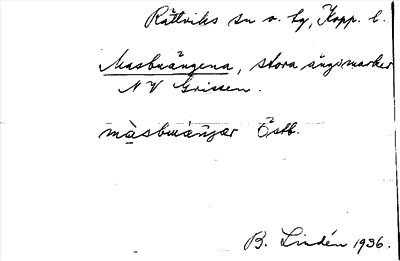 Rättviks sn o. hg, Kopp. l.
Masbuängena, stora ängsmarker
NV Grissen.
màsbuäŋar Östb.
B. Lindén 1936.